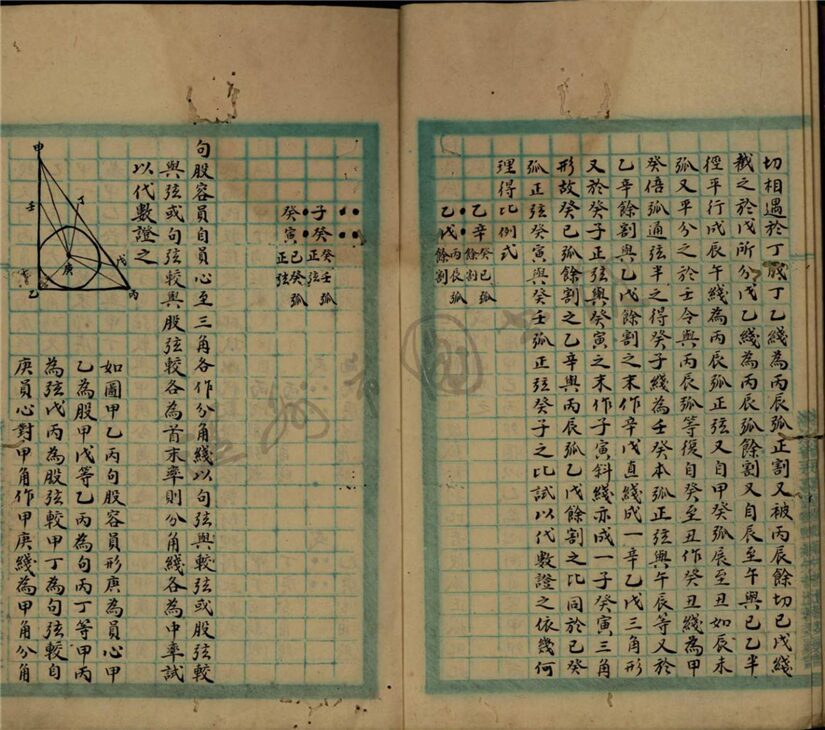 切相遇於丁成丁乙綫為丙辰弧正割又被丙辰餘切已戊綫
截之於戊所分戊乙綫為丙辰弧餘割又自辰至午與已乙半
徑平行成辰午綫為丙辰弧正弦又自甲癸弧辰至丑如辰未
弧又平分之於壬令與丙辰弧等復自癸至丑作癸丑綫為甲
癸倍弧通弦半之得癸子綫為壬癸本弧正弦與午辰等又於
乙辛餘割與乙戊餘割之末作辛戊直綫成一辛乙戊三角形
又於癸子正弦與癸寅之末作子寅斜綫亦成一子癸寅三角
形故癸已弧餘割之乙辛與丙辰弧乙戊餘割之比同於已癸
弧正弦癸寅與癸壬弧正弦癸子之比試以代數證之依幾何
理得比例式
乙辛 癸已弧餘割
乙戊 丙辰弧餘割
子癸 癸壬弧正弦
癸寅 已癸弧正弦
句股容員自員心至三角各作分角綫以句弦與較弦或股弦較
與弦或句弦較與股弦較各為首末率則分角綫各為中率試
以代數證之
甲
壬
丁
庚
戊
乙
丙
如圖甲乙丙句股容員形庚為員心甲
乙為股甲戊等乙丙為句丙丁等甲丙
為弦戊丙為股弦較甲丁為句弦較自
庚員心對甲角作甲庚綫為甲角分角